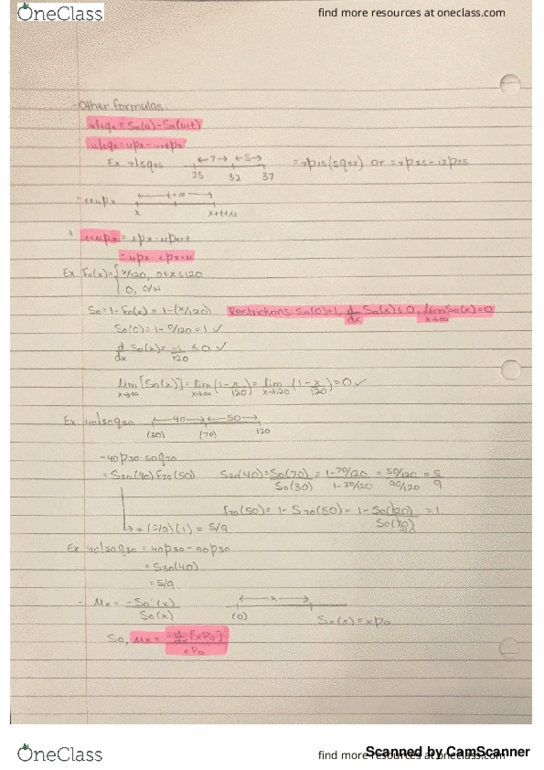 OneClass find more resources at oneclass.com
- Other formulas:
u|tqx = Sx(u) - Sx(u+t)
u|tqx = upx - u+tpx
Ex 7|5q25 ←7→ ←5→ = 7p25(5q32) or = 7p25 - 12p25
25 32 37
- t+upx t+u
x x+t+u
t+upx = tpx · upx+t
= upx · tpx+u
Ex F0(x) = { x/120, 0≤x≤120
0, o/w
S0 = 1 - F0(x) = 1 - (x/120) Restrictions: S0(0)=1, d/dx S0(x) ≤ 0, lim x→∞ S0(x)=0
S0(0) = 1 - 0/120 = 1 ✓
d/dx S0(x) = -1/120 ≤ 0 ✓
lim x→∞ [S0(x)] = lim x→∞ (1 - x/120) = lim x→120 (1 - x/120) = 0 ✓
Ex 40|50q30 ←40→ ←50→
(30) (70) 120
- 40p30 50q70
= S30(40) F70(50) S30(40) = S0(70)/S0(30) = 1-70/120 / 1-30/120 = 50/120 / 90/120 = 5/9
F70(50) = 1 - S70(50) = 1 - S0(120)/S0(70) = 1.
↳ = (5/9)(1) = 5/9
Ex 40|50q30 = 40p30 - 90p30
= S30(40)
= 5/9
- μx = -S0'(x)/S0(x) ←x→
(0) S0(x) = xp0
So, μx = -d/dx [xp0] / xp0
Scanned by CamScanner
OneClass find more resources at oneclass.com